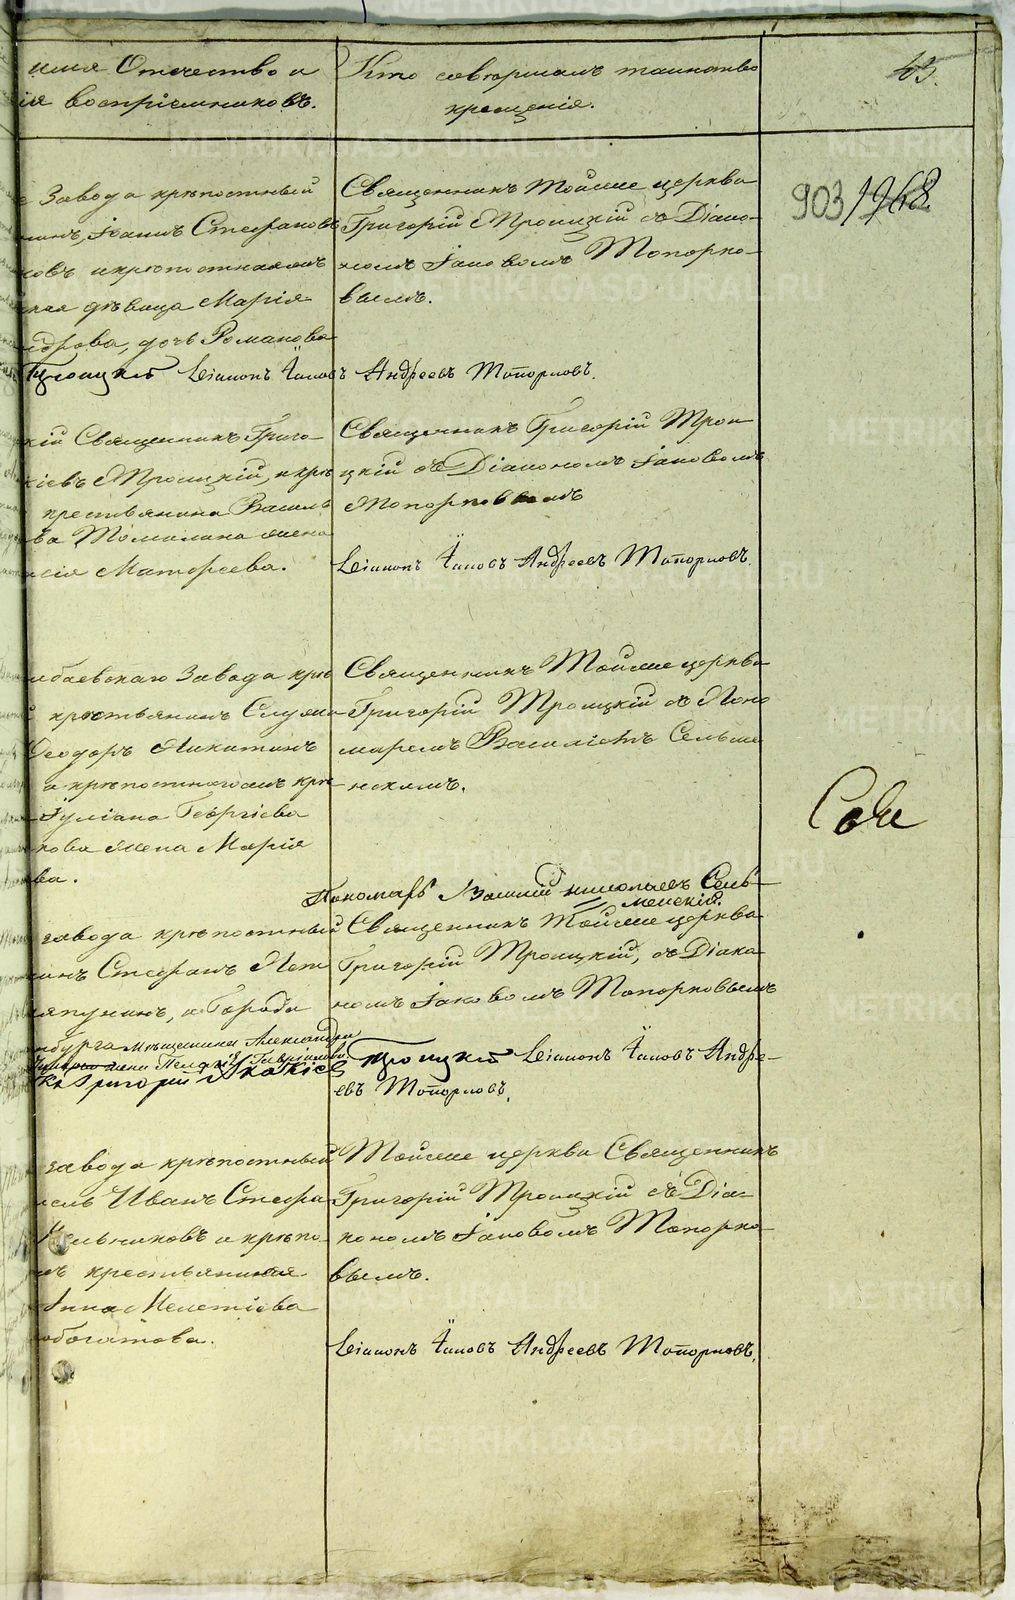 имя Отечество и
ія воспріемниковъ.
Кто совершалъ таинство
крещенія.
43.
903 1968
Завода крѣпостный
Іоаннъ Стефановъ
овъ и крѣпостная
дѣвица Марія
дрова, дочь Романова
Священникъ тойже церкви
Григорій Троицкій съ Діако-
номъ Іаковомъ Топорко-
вымъ.
Троицкій Діаконъ Іаковъ Андреевъ Топорковъ.
кій Священникъ Григо-
ріевъ Троицкій, и крѣ
крестьянина Василь
ва Томилина жена
сія Матфеева.
Священникъ Григорій Трои
цкій съ Діакономъ Іаковомъ
Топорковымъ
Діаконъ Іаковъ Андреевъ Топорковъ.
мбаевскаго Завода крѣ
крестьянинъ
Феодоръ Никитинъ
а крѣпостнаго крѣ
Іуліана Георгіева
кова жена Марія
ва.
Священникъ Тойже церкви
Григорій Троицкій съ Поно
маремъ Василіемъ Сельме
нскимъ.
Пономарь Василій Николаевъ Сель-
менскій.
Сове
завода крѣпостный
инъ Стефанъ Пет
япунинъ, и Города
нбурга мѣщанина Александра
жена Гавріилова
Григорій
Священникъ Тойже церкви
Григорій Троицкій, съ Діако
номъ Іаковомъ Топорковымъ
Троицкій Діаконъ Іаковъ Андре-
евъ Топорковъ.
завода крѣпостный
Иванъ Стефа
Мельниковъ и крѣпо-
крестьянина
Анна Мелетіева
обогатова.
Тойже церкви Священникъ
Григорій Троицкій съ Діа-
кономъ Іаковомъ Топорко-
вымъ.
Діаконъ Іаковъ Андреевъ Топорковъ.
METRIKI.GASO-URAL.RU